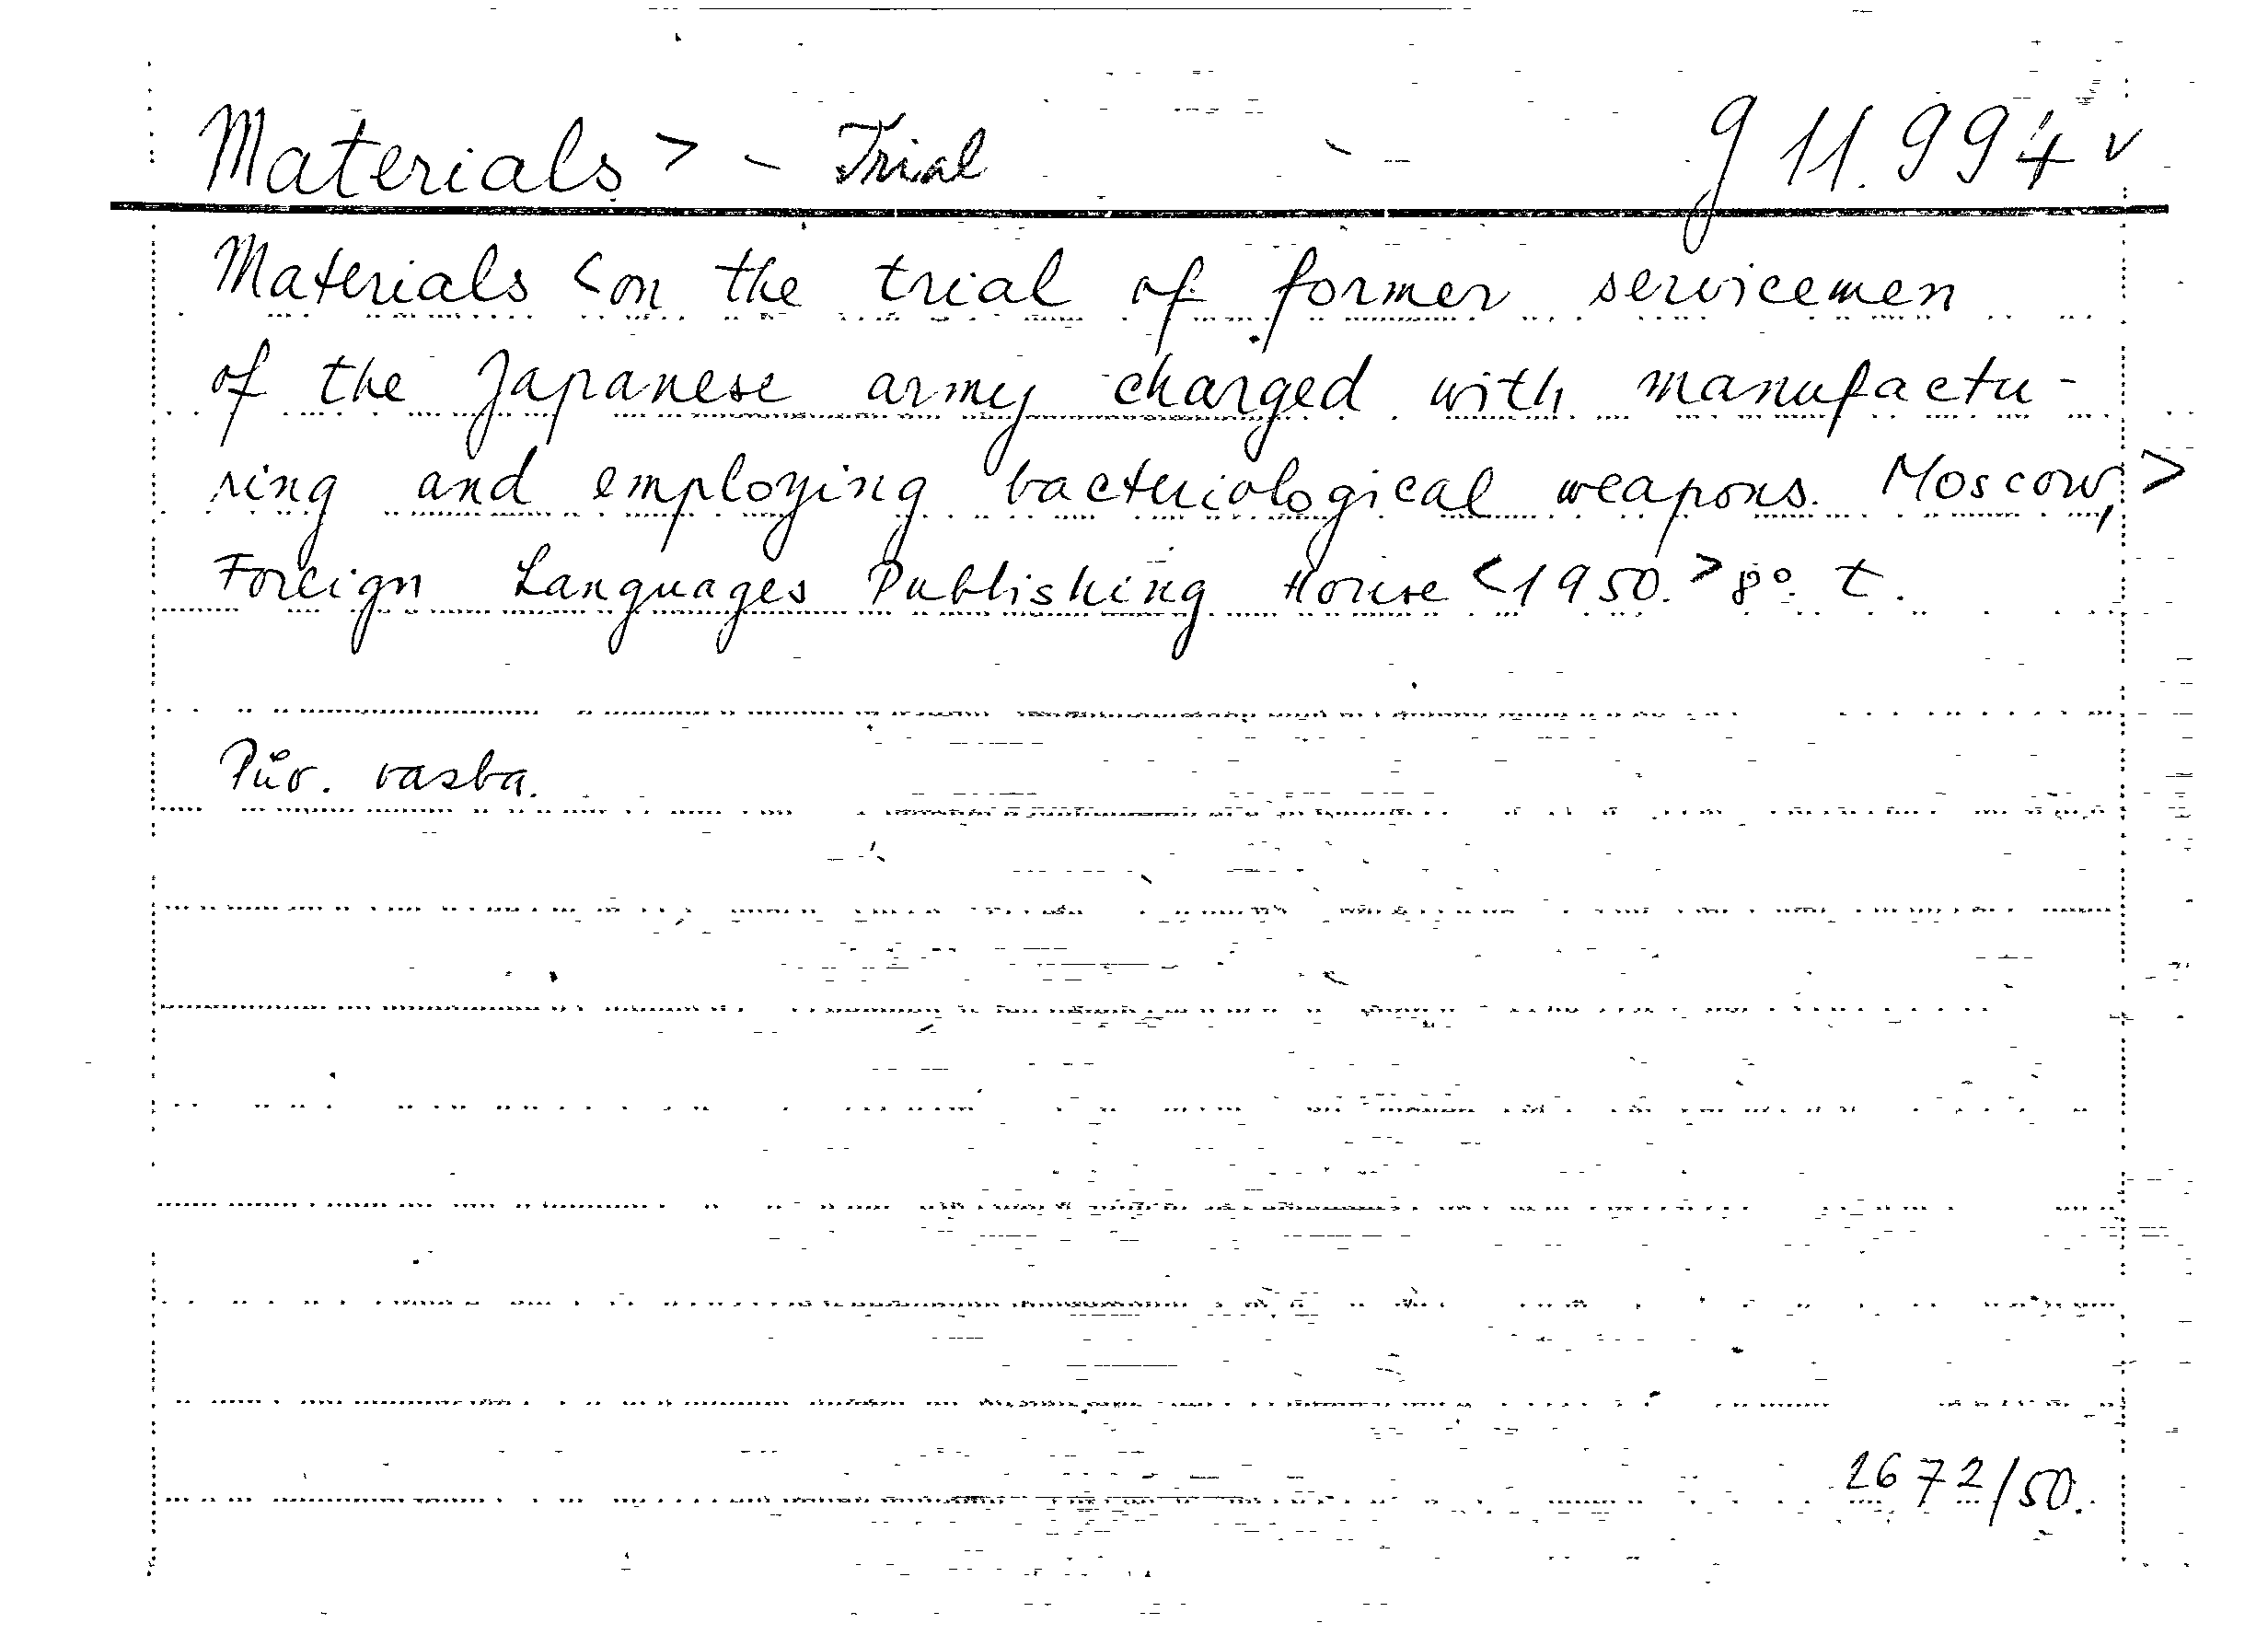 Materials > - Trial g 11.994 v
Materials < on the trial of former servicemen
of the Japanese army charged with manufactu-
ring and employing bacteriological weapons. Moscow, >
Foreign Languages Publishing House <1950.> 8° t.
Pův. vazba.
2672/50.